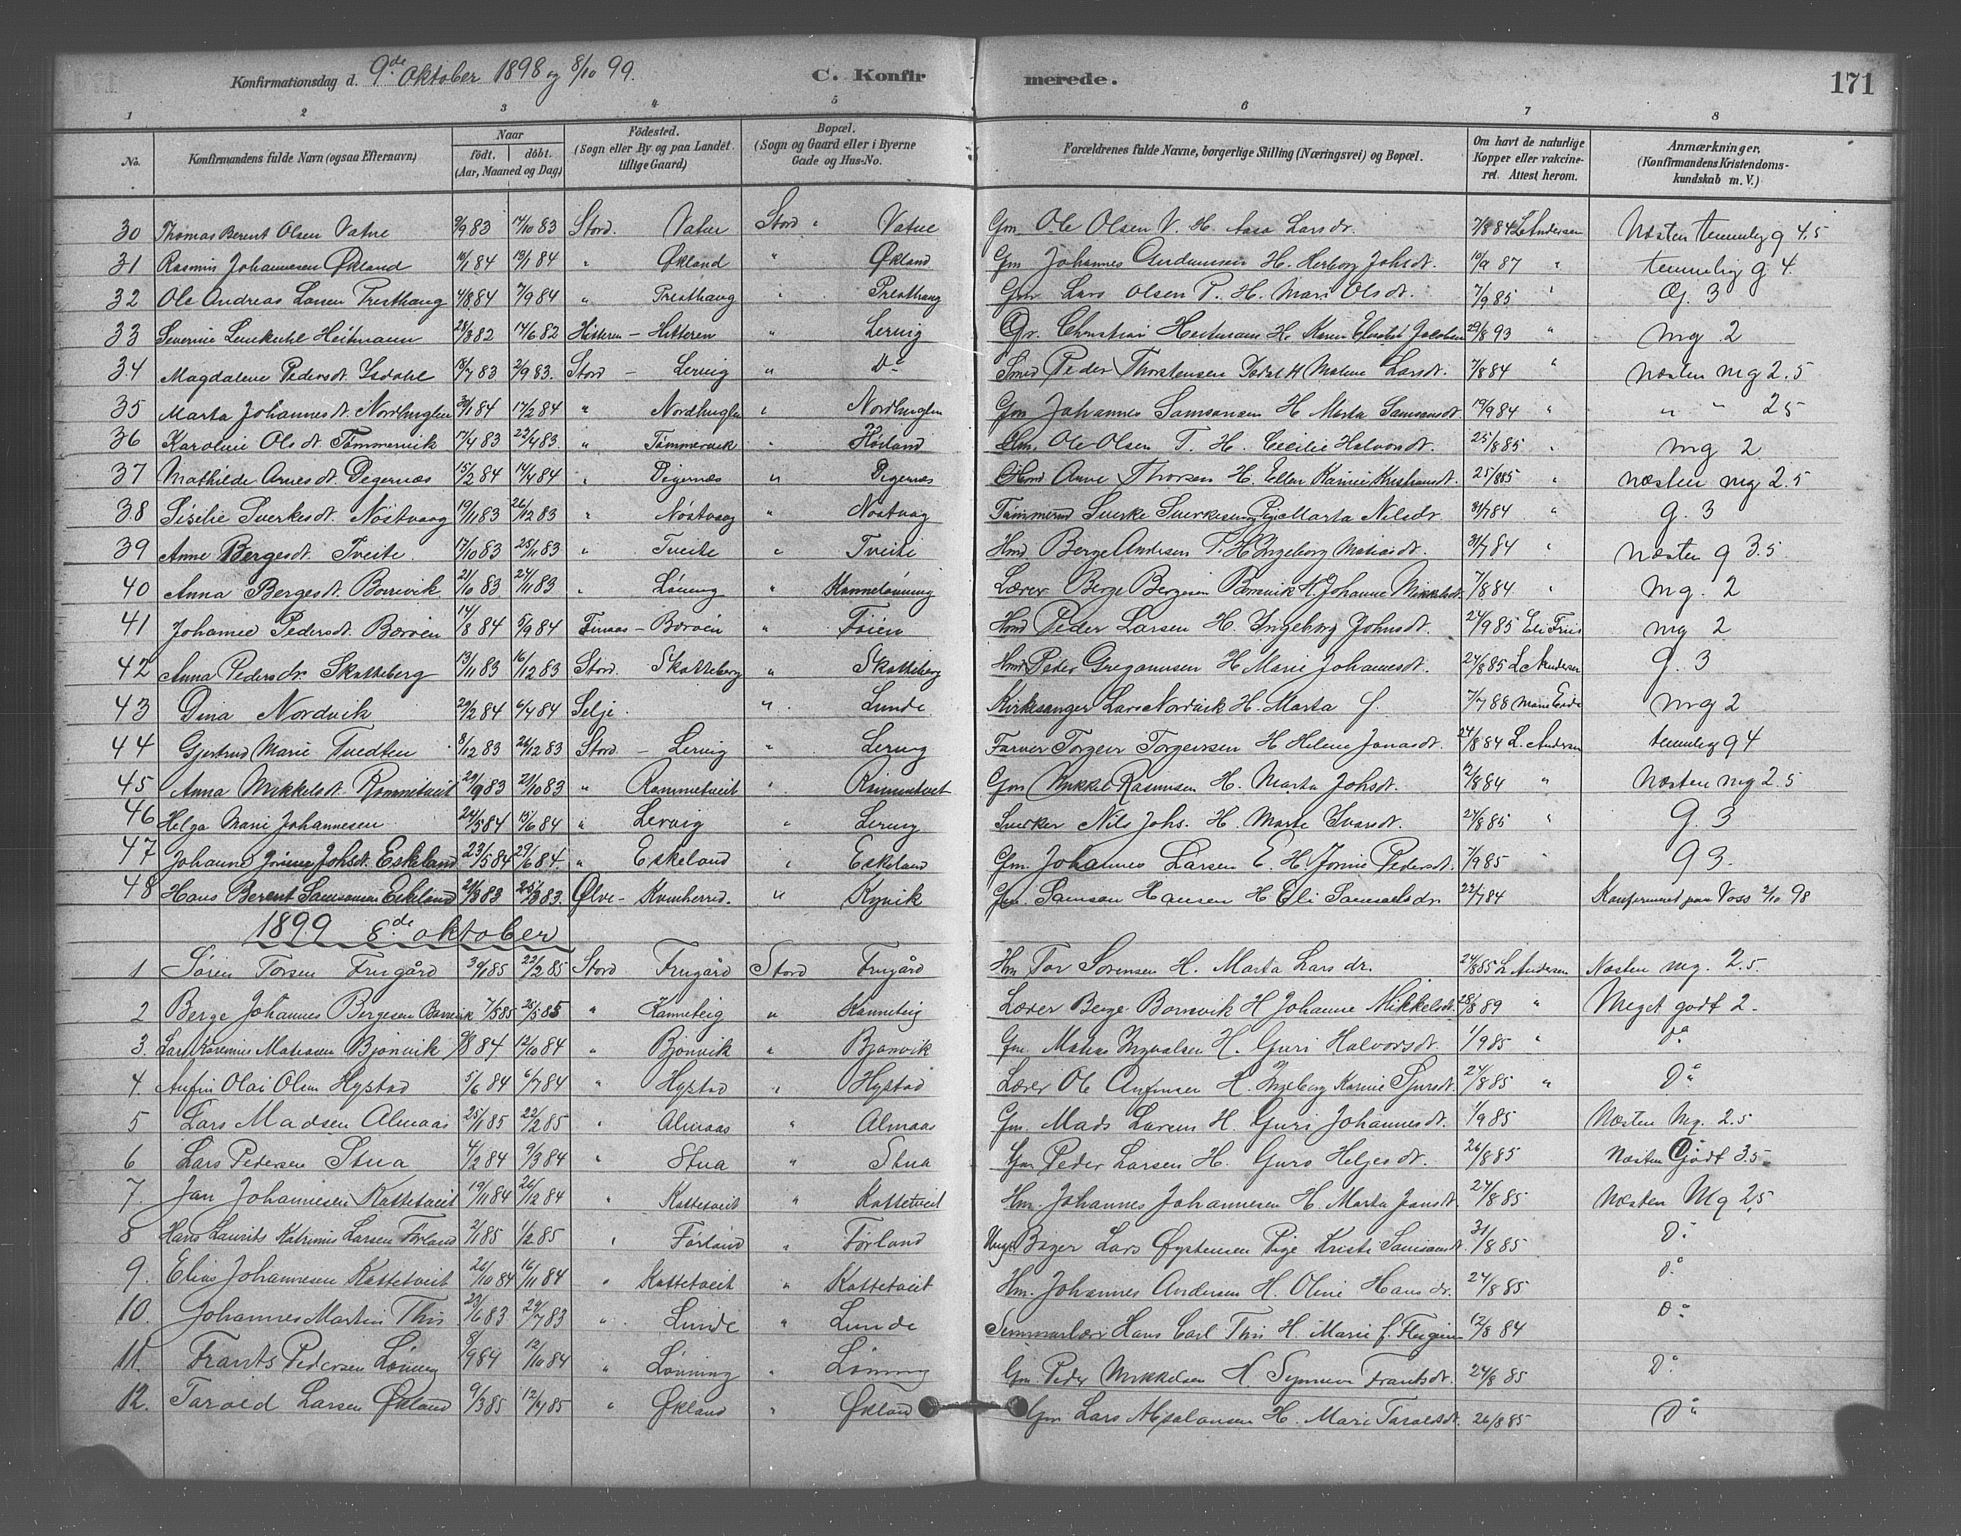 Konfirmationsdag d. 9de Oktober 1898 og 8/10 99. C. Konfirmerede. 171
1 2 3 4 5 6 7 8
No. Konfirmandens fulde Navn (ogsaa Efternavn) Naar født. døbt. (Aar, Maaned og Dag) Fødested. (Sogn eller By og paa Landet tillige Gaard) Bopæl. (Sogn og Gaard eller i Byerne Gade og Hus-No. Forældrenes fulde Navne, borgerlige Stilling (Næringsvei) og Bopæl. Om havt de naturlige Kopper eller vakcineret. Attest herom. Anmærkninger. (Konfirmandens Kristendomskundskab m. V.)
30 Thomas Berent Olsen Vatne 9/9 83 14/10 83 Stord. Vatne Stord " Vatne Gm. Ole Olsen V. H. Aasa Larsdr. 7/8 84 L. Andersen Næsten temmelig g 4.5
31 Rasmus Johannesen Økland 10/1 84 19/1 84 " Økland " Økland Gm Johannes H. Herborg Johsdt. 10/9 87 " temmelig g 4.
32 Ole Andreas Larsen Presthaug 4/8 84 7/9 84 " Presthaug " Presthaug Gm. Lars Olsen P. H. Mari Olsdt. 7/9 85 " G. 3
33 Heitmann 28/3 82 14/6 82 Hitteren - Hitteren " Lervig Christian Heitmann H. Karen 29/8 93 " mg 2
34 Magdalene Pedersdt. Isdahl 8/7 83 2/9 83. Stord - Lervig " Do Smed Peder Thorstensen Isdal H Malene Larsdt. 7/8 84 " Næsten mg 2.5
35 Marta Johannesdt. Nordhuglen 20/1 84 17/2 84 " Nordhuglen " Nordhuglen Gm Johannes Samsonsen H Marta Samsonsdt. 19/9 84 " " " 2.5
36 Karoline Olsdt. Tømmervik 17/4 83 22/4 83. " Tømmervik " Høiland Ole Olsen T. H. Cecilie Halvorsdt. 25/8 85 " mg 2
37 Mathilde Arnesdt. Digernæs 15/2 84 14/4 84 " Digernæs " Digernæs Arne Thorsen H. Ellen Karine Kristiansdt. 25/8 85 " næsten mg 2.5
38 Siselie Sverkesdt. Nøstvaag 19/11 83 26/12 83 " Nøstvaag " Nøstvaag Tømmermd Sverke Sverkesen Pige Marta Nilsdr. 31/7 84 " g. 3
39 Anne Bergesdt. Tveite. 17/10 83 25/11 83 " Tveite " Tveite Hmd Berge Andersen T. H Ingeborg Matiasdt. 31/7 84 " Næsten g 3.5
40 Anna Bergesdt. Bornvik 21/10 83 24/11 83 " Løning " Kanneløning Lærer Berge Bergesen Bornvik H. Johanne Mikkelsdt. 7/8 84 " mg. 2
41 Johanne Pedersdt. Børven 14/8 84 5/9 84 Finaas - Børven " Føien Hmd Peder Larsen H. Ingeborg Johnsdt. 24/9 85 Eli Friis mg 2
42 Anna Pedersdr Skatteberg 13/11 83 16/12 83 Stord. Skatteberg " Skatteberg Hmd Peder Gregoriussen H Marie Johannesdt. 24/8 85 L. Andersen g. 3
43 Dina Nordvik 29/2 84 6/4 84 Selje " Lunde Kirkesanger Lars Nordvik H. Marta f. 7/7 88 Marie Eide mg 2
44 Gjertrud Marie Tvedten 8/12 83 26/12 83 Stord - Lervig " Lervig Farver Torgeir Torgeirsen H Helene Jonasdt. 24/8 84 L. Andersen temmelig g 4
45 Anna Mikkelsdt. Rommetveit 29/9 83 21/10 83 " Rommetveit " Rommetveit Gm Mikkel Rasmusen H. Marta Johsdt. 2/8 84 " Næsten mg 2.5
46 Helga Marie Johannesen 24/5 84 15/6 84 " Lervig " Lervig Snekker Nils Johs. H. Marte Ivarsdt. 24/8 85 " g. 3
47 Johanne Jonine Johsdt. Eskeland 23/5 84 29/6 84 " Eskeland " Eskeland Gm. Johannes Larsen E. H. Jonine Pedersdt. 7/9 85 " g 3.
48 Hans Berent Samsonsen Eskeland 21/3 83 25/3 83. Ølve - Kvinherred. " Kyvik Gm. Samson Hansen H Eli Samuelsdr. 22/7 84 Konfirmeret paa Voss 2/10 98
1899 8de oktober
1 Søren Torsen Frugård 30/1 85 22/2 85 Stord Frugård Stord Frugård Hm. Tor Sørensen H. Marta Larsdr. 24/8 85 L. Andersen Næsten mg. 2.5.
2 Berge Johannes Bergesen Bornvik 7/5 85 25/5 85 " Kanneteig " Kanneteig Lærer Berge Bornvik H Johanne Mikkelsdt. 28/8 89 " Meget godt 2.
3. Lars Matiasen Bjønvik 84 12/10 84 " Bjønvik " Bjønvik Gm. Matias Ingvalsen H. Guri Halvorsdt. 1/9 85 " Do
4. Anfin Olai Olsen Hystad 5/6 84 6/7 84 " Hystad " Hystad Lærer Ole Anfinsen H. Ingeborg Karine Sjursdt. 24/8 85 " Do
5 Lars Madsen Almaas 25/1 85 22/2 85 " Almaas " Almaas Gm. Mads Larsen H. Guri Johannesdt. 1/9 85 Næsten Mg. 2.5
6 Lars Pedersen Stua 4/2 84 9/3 84 " Stua " Stua Gm Peder Larsen H. Guro Helgesdt. 26/8 85 Næsten Godt 3.5.
7. Jan Johannesen Kattetveit 19/11 84 26/12 84 " Kattetveit " Kattetveit Hm. Johannes Johannesen H. Marta Jansdt. 24/8 85 Næsten Mg 2.5
8 Hans Laurits Katrinus Larsen Førland 2/1 85 1/2 85 " Førland " Førland Ungk. Bager Lars Øystensen Pige Kristi Samsonsdt. 31/8 85 Do
9. Elias Johannesen Kattetveit 26/10 84 16/11 84 " Kattetveit " Kattetveit Hm. Johannes Andersen H. Oline Hansdr. 24/8 85 Do
10. Johannes Martin This 23/6 83 29/7 83 " Lunde " Lunde Seminarlærer Hans Carl This H. Marie f. 12/8 84 Do
11. Frants Pedersen Lønning 8/9 84 12/10 84 " Lønning " Lønning Gm. Peder Mikkelsen H. Synneva Frantsdt. 24/8 85 Do
12. Tarald Larsen Økland 9/3 85 12/4 85 " Økland " Økland Gm Lars Absalonsen H. Mari Taraldsdt. 26/8 85 Do